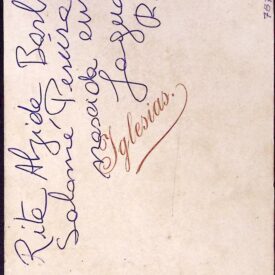 Rita Alzida Bar
Salomé Pereira
nascida em
Jagua
R
Iglesias.